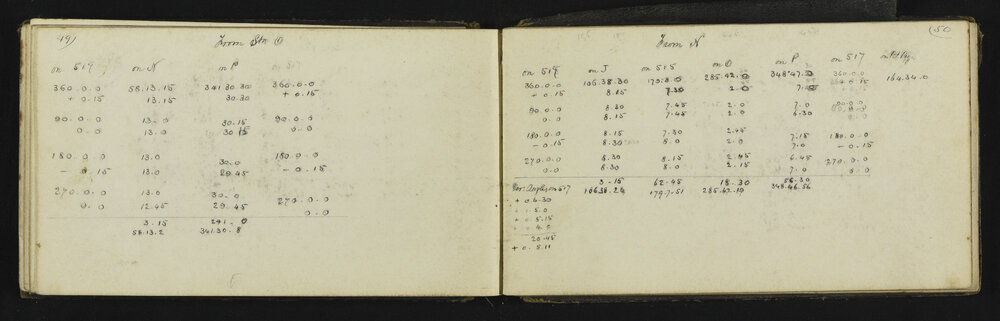 49)
From Stn O
on 519 on N on P on 517
360.0.0 58.13.15 341.30.30 360.0.0
+ 0.15 13.15 30.30 + 0.15
90.0.0 13.0 30.15 90.0.0
0.0 13.0 30.15 0.0
180.0.0 13.0 30.0 180.0.0
- 0.15 13.0 29.45 - 0.15
270.0.0 13.0 30.0 270.0.0
0.0 12.45 29.45 0.0
3.15 241.0
58.13.2 341.30.8
(50
From N
on 519 on J on 515 on O on P on 517
360.0.0 106.38.30 179.8.0 285.42.0 348.47.30 360.0.0 164.34.0
+ 0.15 8.15 7.30 2.0 7.15 + 0.15
90.0.0 8.30 7.45 2.0 7.0 90.0.0
0.0 8.15 7.45 2.0 6.30
180.0.0 8.15 7.30 2.45 7.15 180.0.0
- 0.15 8.30 8.0 2.0 7.0 - 0.15
270.0.0 8.30 8.15 2.45 6.45 270.0.0
0.0 8.30 8.0 2.15 7.0 0.0
3.15 62.45 18.30 56.30
on 517 179.7.51 348.46.56
+ 0.4.30
+ 0.5.0
+ 0.5.15
20.45
+ 0.5.11